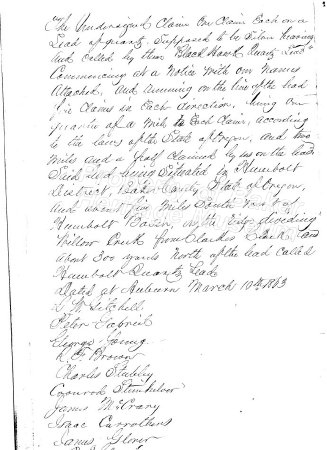 The Undersigned Claim One Claim Each on a
Lead of quartz Supposed to be Silver bearing
And Called by them "Black Hawk Quartz Lead"
Commencing at a Notice with our Names
Attached, And running on the line of the lead
five Claims in Each direction, being one
quarter of a Mile to Each Claim, according
to the laws of the State of Oregon, and two
Miles and a half Claimed by us on the lead
Said lead being Situated in Humbolt
District, Baker County, State of Oregon,
And about five Miles South West of
Humbolt Basin, on the ridge dividing
Willow Creek from Clarkes Creek and
about 300 yards North of the lead Called
Humbolt Quartz Lead
Dated at Auburn March 10th 1863
Mitchell
Peter Gabriel
George Young
Brown
Charles Stubley
Conrod
James McCrary
Isaac Carrothers
James Glover